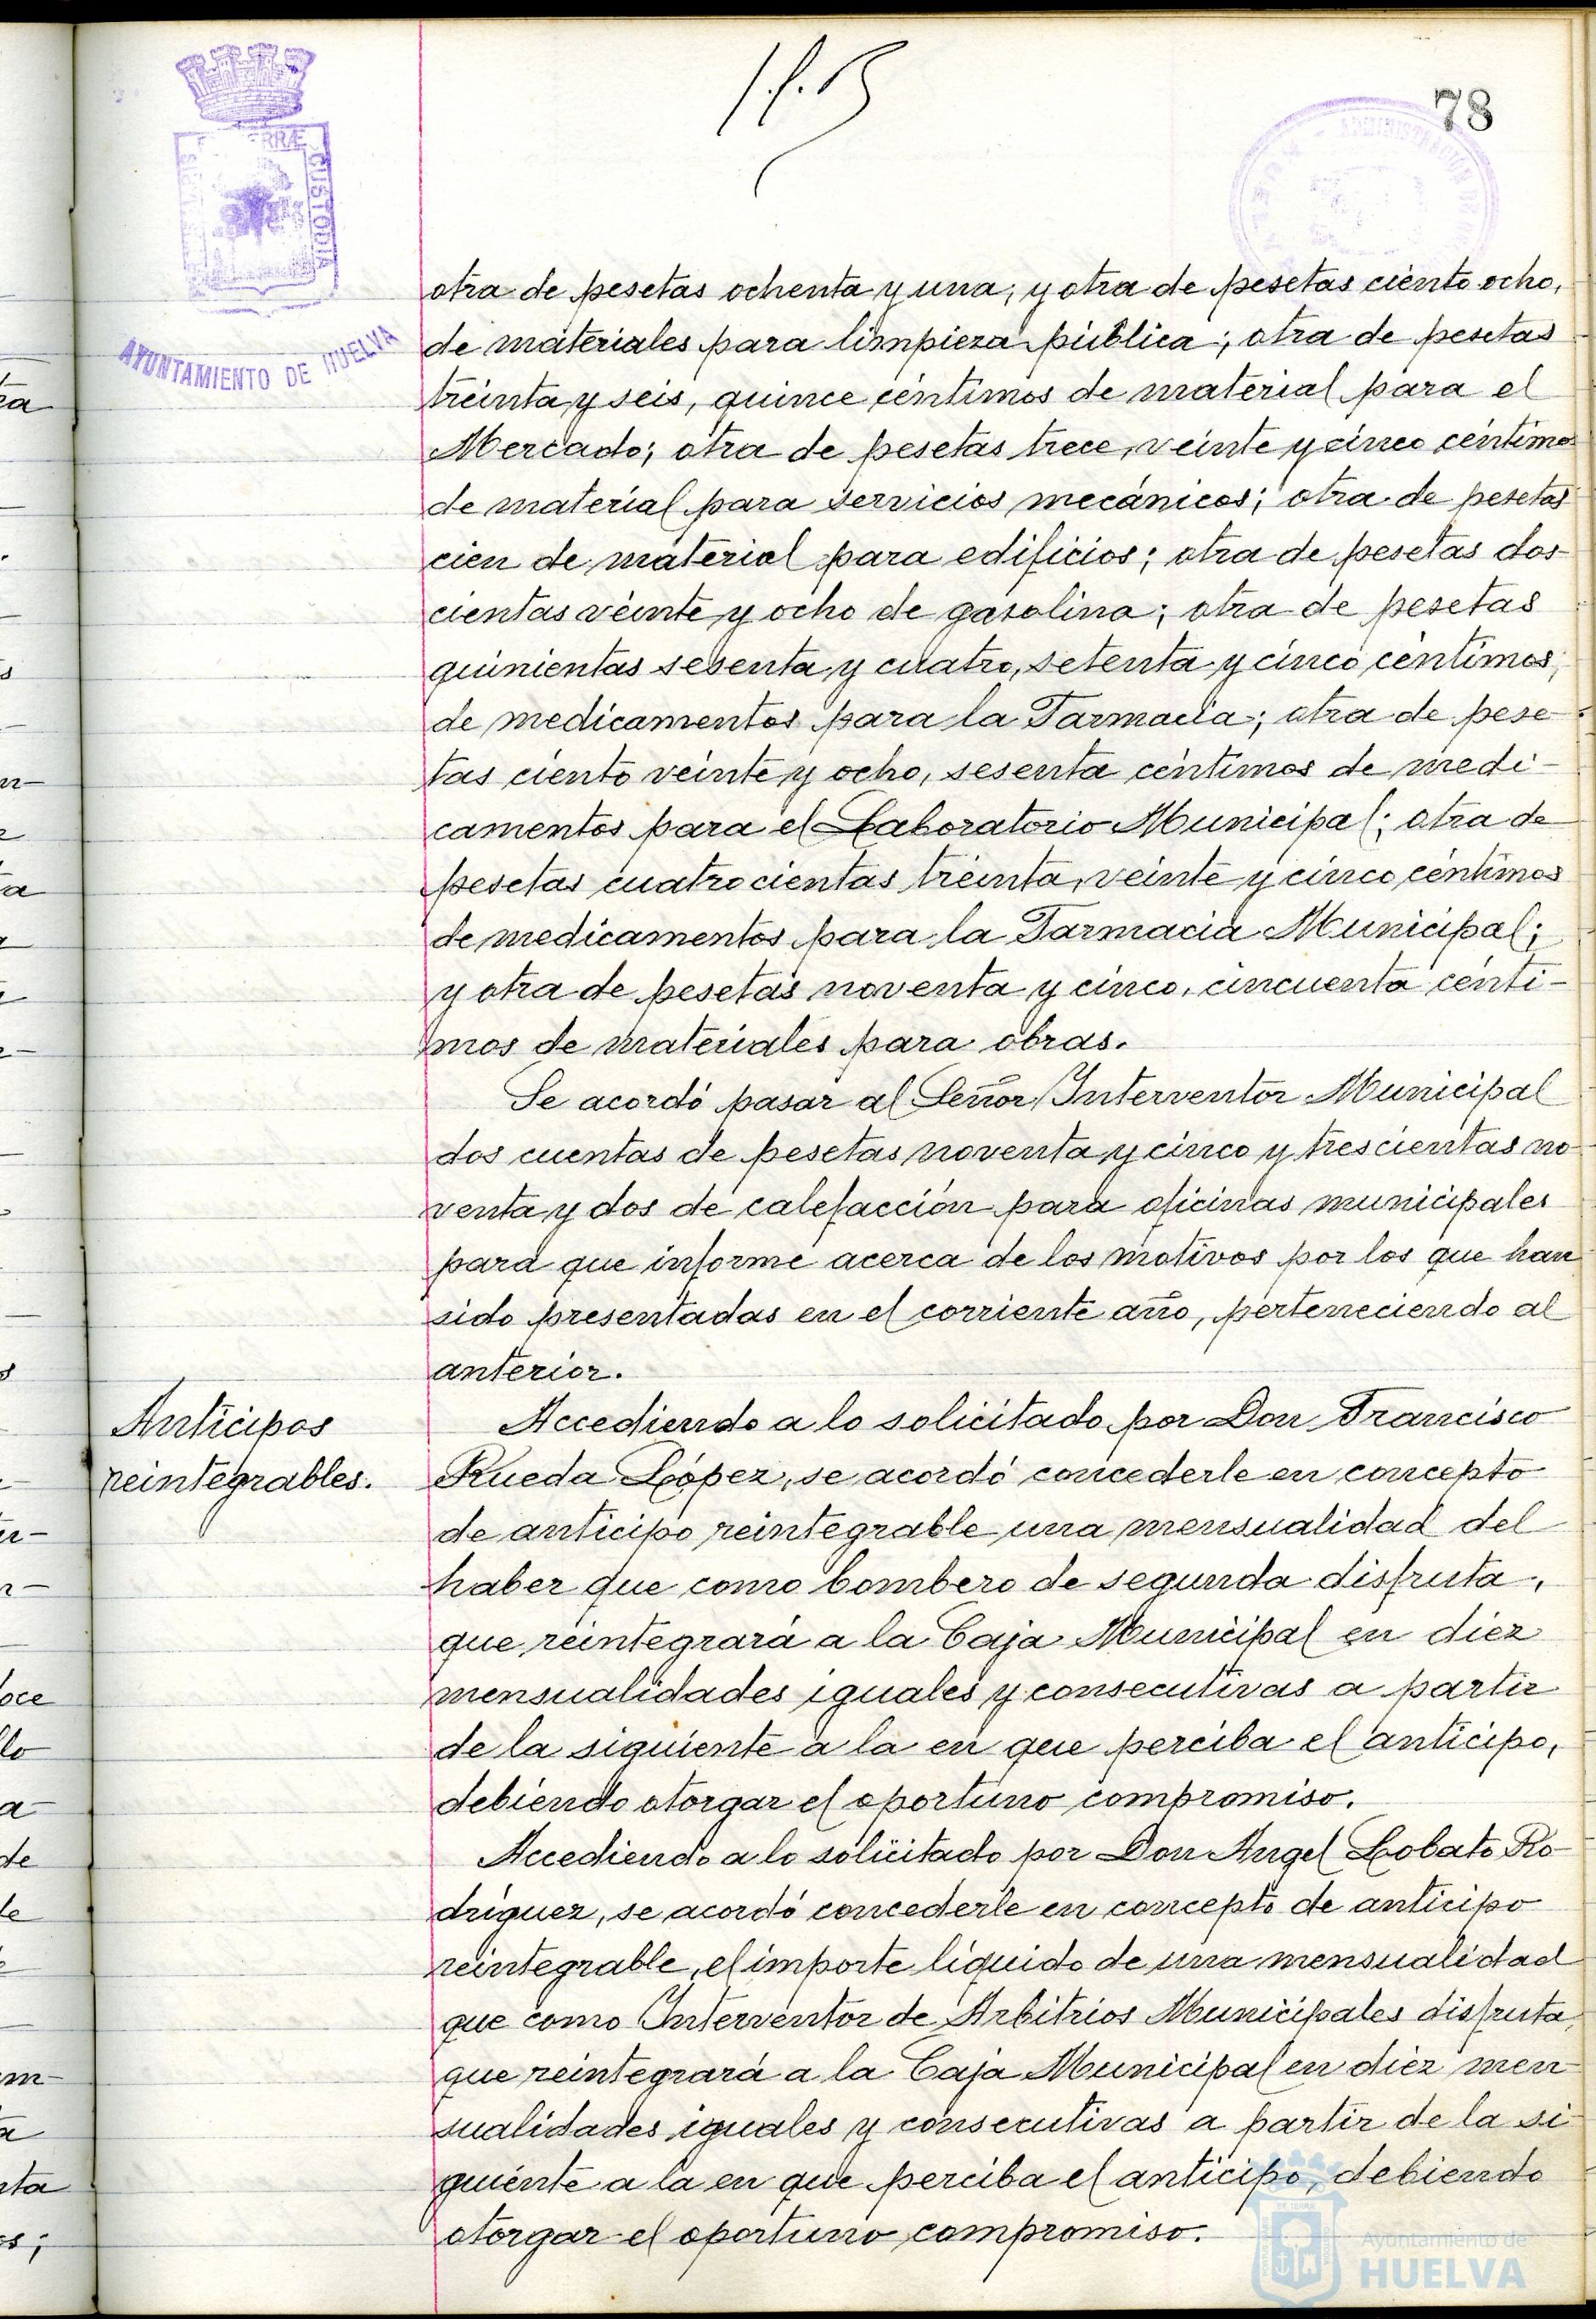 78
RRÆ
CUSTODIA
AYUNTAMIENTO DE HUELVA
ADMINISTRACIÓN DE
otra de pesetas ochenta y una; y otra de pesetas ciento ocho,
de materiales para limpieza pública; otra de pesetas
treinta y seis, quince céntimos de material para el
Mercado; otra de pesetas trece, veinte y cinco céntimos
de material para servicios mecánicos; otra de pesetas
cien de material para edificios; otra de pesetas dos-
cientas veinte y ocho de gasolina; otra de pesetas
quinientas sesenta y cuatro, setenta y cinco céntimos,
de medicamentos para la Farmacia; otra de pese-
tas ciento veinte y ocho, sesenta céntimos de medi-
camentos para el Laboratorio Municipal; otra de
pesetas cuatrocientas treinta, veinte y cinco céntimos
de medicamentos para la Farmacia Municipal;
y otra de pesetas noventa y cinco, cincuenta cénti-
mos de materiales para obras.
Se acordó pasar al Señor Interventor Municipal
dos cuentas de pesetas noventa y cinco y trescientas no-
venta y dos de calefacción para oficinas municipales
para que informe acerca de los motivos por los que han
sido presentadas en el corriente año, perteneciendo al
anterior.
Anticipos
reintegrables.
Accediendo a lo solicitado por Don Francisco
Rueda López, se acordó concederle en concepto
de anticipo reintegrable una mensualidad del
haber que como bombero de segunda disfruta,
que reintegrará a la Caja Municipal en diez
mensualidades iguales y consecutivas a partir
de la siguiente a la en que perciba el anticipo,
debiendo otorgar el oportuno compromiso.
Accediendo a lo solicitado por Don Angel Lobato Ro-
dríguez, se acordó concederle en concepto de anticipo
reintegrable, el importe líquido de una mensualidad
que como Interventor de Arbitrios Municipales disfruta,
que reintegrará a la Caja Municipal en diez men-
sualidades iguales y consecutivas a partir de la si-
guiente a la en que perciba el anticipo, debiendo
otorgar el oportuno compromiso.
Ayuntamiento de
HUELVA